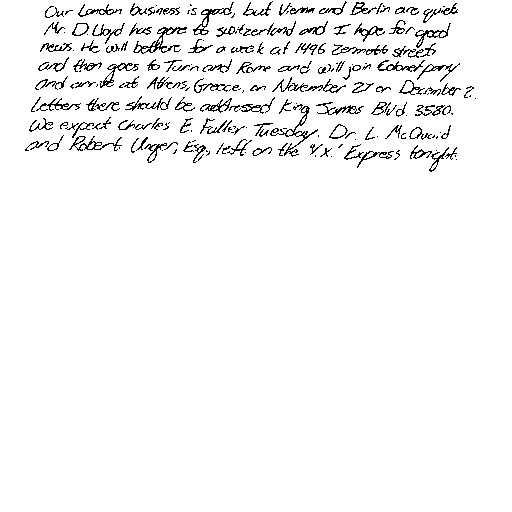 Our London business is good, but Vienna and Berlin are quiet.
Mr. D. Lloyd has gone to switzerland and I hope for good
news. He will be there for a week at 1496 Zermott street
and then goes to Turin and Rome and will join Colonel parry
and arrive at Athens, Greece, on November 27 or December 2.
Letters there should be addressed King James Blvd. 3580.
We expect Charles E. Fuller Tuesday. Dr. L. McQuaid
and Robert Unger, Esq., left on the 'Y.X.' Express tonight.